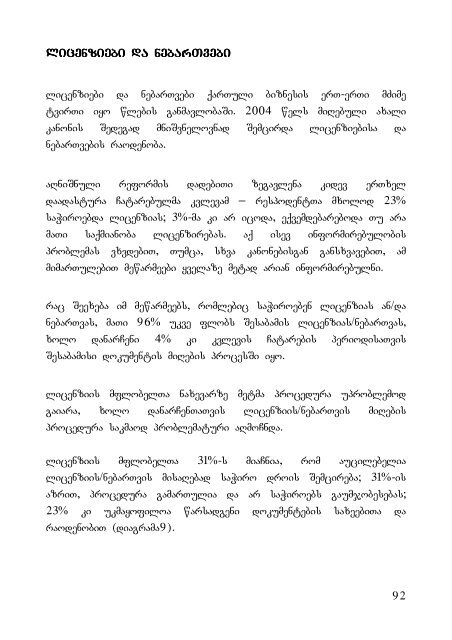 ლიცენზიები და ნებართვები
ლიცენზიები და ნებართვები ქართული ბიზნესის ერთ-ერთი მძიმე
ტვირთი იყო წლების განმავლობაში. 2004 წელს მიღებული ახალი
კანონის შედეგად მნიშვნელოვნად შემცირდა ლიცენზიებისა და
ნებართვების რაოდენობა.
აღნიშნული რეფორმის დადებითი ზეგავლენა კიდევ ერთხელ
დაადასტურა ჩატარებულმა კვლევამ – რესპოდენტთა მხოლოდ 23%
საჭიროებდა ლიცენზიას; 3%-მა კი არ იცოდა, ექვემდებარებოდა თუ არა
მათი საქმიანობა ლიცენზირებას. აქ ისევ ინფორმირებულობის
პრობლემას ვხვდებით, თუმცა, სხვა კანონებისგან განსხვავებით, ამ
მიმართულებით მეწარმეები ყველაზე მეტად არიან ინფორმირებულნი.
რაც შეეხება იმ მეწარმეებს, რომლებიც საჭიროებენ ლიცენზიას ან/და
ნებართვას, მათი 96% უკვე ფლობს შესაბამის ლიცენზიას/ნებართვას,
ხოლო დანარჩენი 4% კი კვლევის ჩატარების პერიოდისათვის
შესაბამისი დოკუმენტის მიღების პროცესში იყო.
ლიცენზიის მფლობელთა ნახევარზე მეტმა პროცედურა უპრობლემოდ
გაიარა, ხოლო დანარჩენთათვის ლიცენზიის/ნებართვის მიღების
პროცედურა საკმაოდ პრობლემატური აღმოჩნდა.
ლიცენზიის მფლობელთა 31%-ს მიაჩნია, რომ აუცილებელია
ლიცენზიის/ნებართვის მისაღებად საჭირო დროის შემცირება; 31%-ის
აზრით, პროცედურა გამართულია და არ საჭიროებს გაუმჯობესებას;
23% კი უკმაყოფილოა წარსადგენი დოკუმენტების სახეებითა და
რაოდენობით (დიაგრამა9).
92